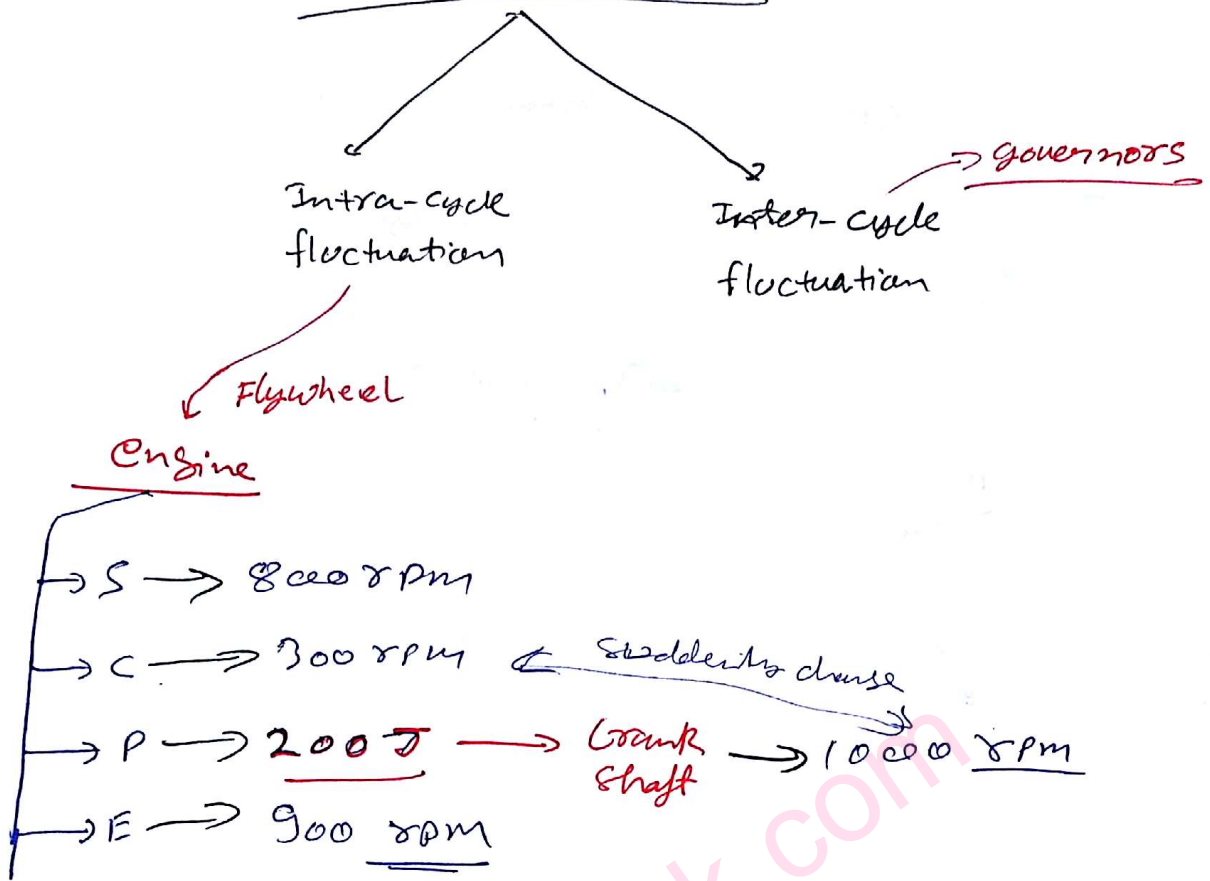 Intra-cycle
fluctuation
Inter-cycle
fluctuation
→ governors
Flywheel
Engine
→ S → 800 rpm
→ C → 300 rpm
Suddenly change
→ P → 200 J → Crank
shaft → 10000 rpm
→ E → 900 rpm
k.com